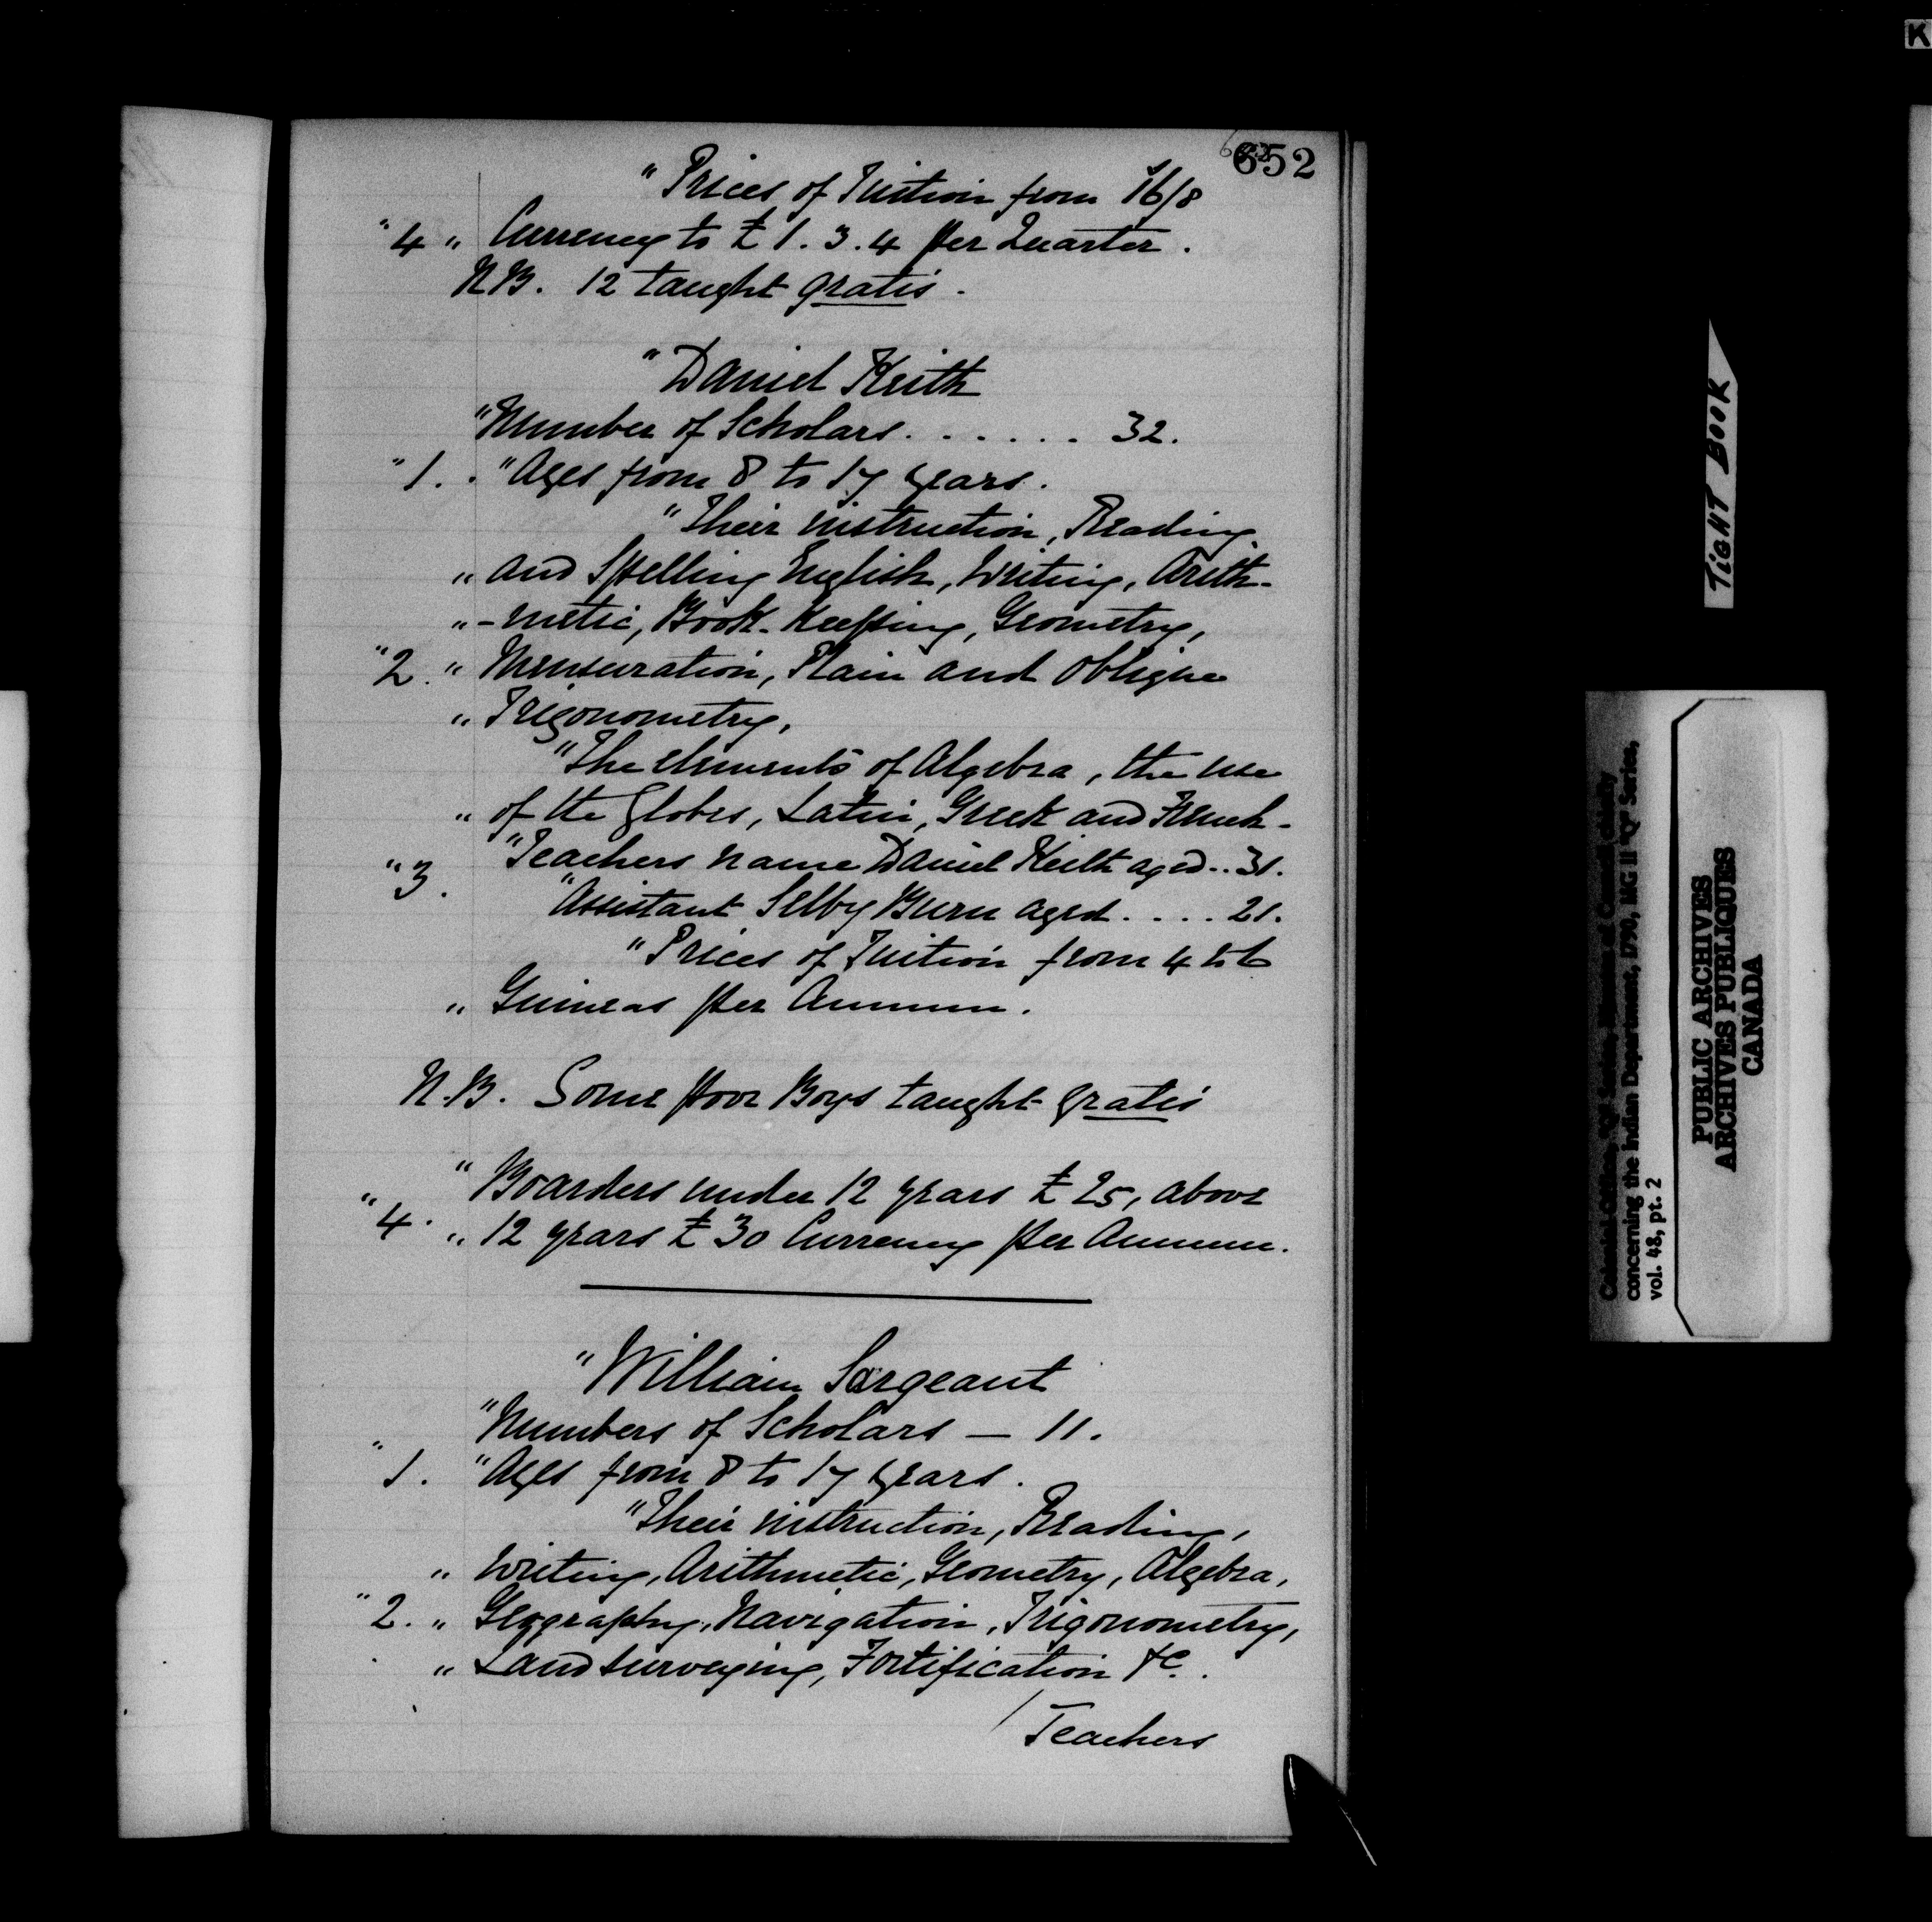 652
"Prices of Tuition from 16/8
"4 " Currency to £1.3.4 per Quarter.
N.B. 12 taught gratis.
"Daniel Keith
"Number of Scholars. . . . . . 32.
"1. "Ages from 8 to 17 years.
"Their instruction, Reading
" and Spelling English, Writing, Arith-
" -metic, Book-Keeping, Geometry,
"2. " Mensuration, Plain and Oblique
" Trigonometry,
"The elements of Algebra, the use
" of the Globes, Latin, Greek and French-
"Teachers name Daniel Keith aged.. 31.
"3.
"Assistant Selby Burn aged . . . . 21.
"Prices of Tuition from 4 to 6
" Guineas per Annum.
N.B. Some poor Boys taught gratis
"Boarders under 12 years £25, above
"4. " 12 years £30 Currency per Annum.
"William Sargeant
"Numbers of Scholars — 11.
"1. "Ages from 8 to 17 years.
"Their instruction, Reading,
" Writing, Arithmetic, Geometry, Algebra,
"2. " Geography, Navigation, Trigonometry,
" Land surveying, Fortification &c.
/Teachers
TIGHT BOOK
concerning the Indian Department, 1790, MG 11 "Q" Series,
vol. 48, pt. 2
PUBLIC ARCHIVES
ARCHIVES PUBLIQUES
CANADA
K